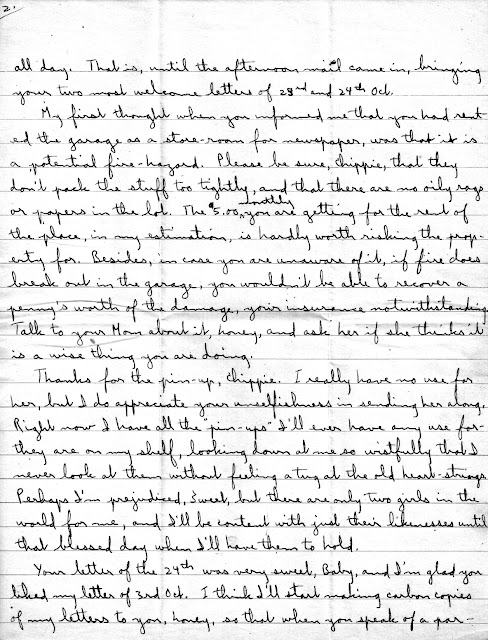 2.
all day. That is, until the afternoon mail came in, bringing
your two most welcome letters of 23rd and 24th Oct.
My first thought when you informed me that you had rent-
ed the garage as a store-room for newspaper, was that it is
a potential fire-hazard. Please be sure, Chippie, that they
don't pack the stuff too tightly, and that there are no oily rags
or papers in the lot. The $5.00 monthly you are getting for the rent of
the place, in my estimation, is hardly worth risking the prop-
erty for. Besides, in case you are unaware of it, if fire does
break out in the garage, you wouldn't be able to recover a
penny's worth of the damage, your insurance notwithstanding.
Talk to your Mom about it, honey, and ask her if she thinks it
is a wise thing you are doing.
Thanks for the pin-up, Chippie. I really have no use for
her, but I do appreciate your unselfishness in sending her along.
Right now I have all the "pin-ups" I'll ever have any use for-
they are on my shelf, looking down at me so wistfully that I
never look at them without feeling a tug at the old heart-strings.
Perhaps I'm prejudiced, Sweet, but there are only two girls in the
world for me, and I'll be content with just their likenesses until
that blessed day when I'll have them to hold.
Your letter of the 24th was very sweet, Baby, and I'm glad you
liked my letter of 3rd Oct. I think I'll start making carbon copies
of my letters to you, honey, so that when you speak of a par-